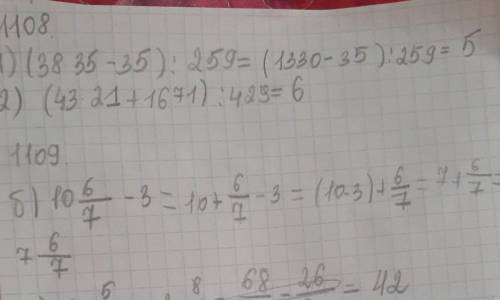 1108.
1) (38 35 - 35) : 259 = (1330 - 35) : 259 = 5
2) (43 21 + 1671) : 429 = 6
1109.
б) 10 6/7 - 3 = 10 + 6/7 - 3 = (10-3) + 6/7 = 7 + 6/7 =
7 6/7
5 8 68 - 26 = 42